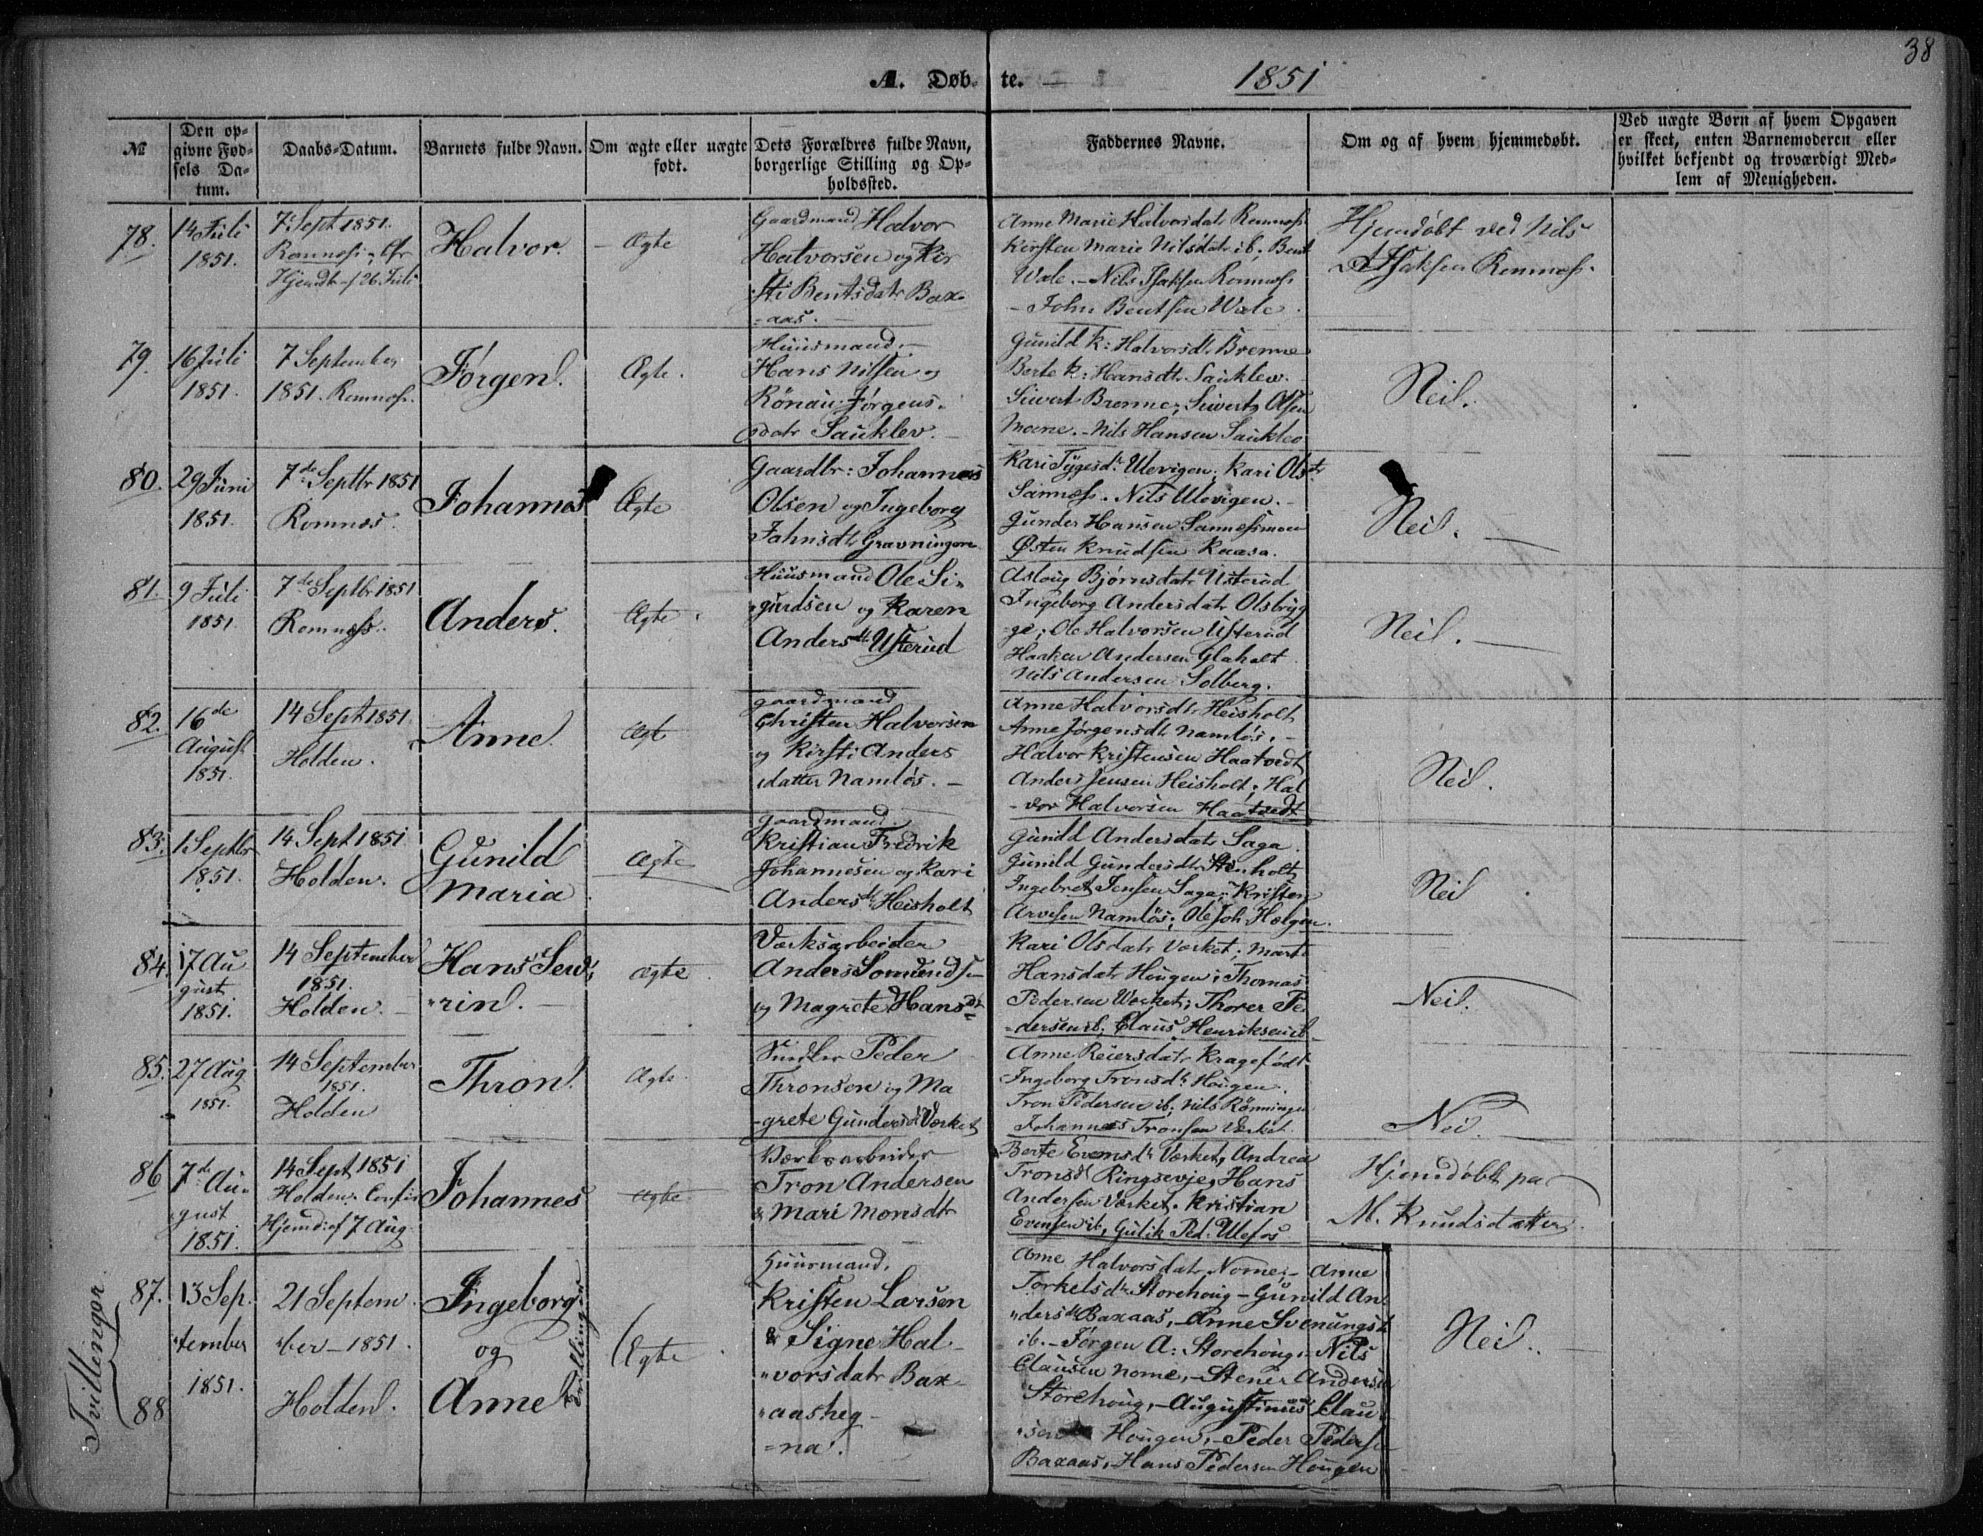 38
A. Døb- te. 1851
№
Den op-
givne Fød-
sels Da-
tum.
Daabs-Datum.
Barnets fulde Navn.
Om ægte eller uægte
født.
Dets Forældres fulde Navn,
borgerlige Stilling og Op-
holdssted.
Faddernes Navne.
Om og af hvem hjemmedøbt.
Ved uægte Børn af hvem Opgaven
er skeet, enten Barnemoderen eller
hvilket bekjendt og troværdigt Med-
lem af Menigheden.
78.
14 Juli
1851.
7. Sept 1851.
Romnæs
Hjemdbt 26 Juli
Halvor.
Ægte
Gaardmand Halvor
Halvorsen og Kir
sti Bentsdatr Bax-
=aas.
Anne Marie Halvorsdatr Romnæs.
Kirsten Marie Nilsdatr ib; Bent
Wale. - Nils Isaksen Romnæs
- John Bentsen Wale.
Hjemdøbt ved Nils
Isaksen Romnæs.
79.
16 Juli
1851.
7 September
1851. Romnæs.
Jörgen.
Ægte.
Huusmand.
Hans Nilsen og
Rönau Jörgens-
datr Sauklev.
Gunild K: Halvorsdtr Brenne
Berte K: Hansdtr Sauklev.
Siwert Brenne, Siwert Olsen
Moene. - Nils Hansen Sauklev
Neil.
80.
29 Juni
1851.
7de Septbr 1851
Romnæs.
Johannes
Ægte
Gaardbr: Johannes
Olsen og Ingeborg
Jahnsdtr Gravningen
Kari Tygesdr Ulevigen; Kari Olsdt
Sannæs. Nils Ulevigen.
Gunder Hansen Sannesmoen
Østen Knudsen Kaasa.
Neil.
81.
9 Juli
1851.
7de Septbr 1851
Romnæs.
Anders.
Ægte
Huusmand Ole Si-
gurdsen og Karen
Andersdtr Usterud
Aslaug Bjørnsdatr Usterud
Ingeborg Andersdatr Olsbryg
ge; Ole Halvorsen Usterud
Haaken Andersen Glaholt
Nils Andersen Solberg.
Neil.
82.
16de
August
1851.
14 Sept 1851.
Holden.
Anne.
Ægte
gaardmand
Christen Halvorsen
og Kirsti Anders
datter Namløs.
Anne Halvorsdtr Heisholt
Anne Jørgensdt Namløs.
Halvor Kristensen Haatvedt
Anders Jensen Heisholt; Hal
-vor Halvorsen Haatvedt
Neil.
83.
1 Septbr
1851.
14 Sept 1851
Holden.
Gunild
Maria
Ægte
gaardmand.
Kristian Fredrik
Johannesen og Kari
Andersdtr Heisholt
Gunild Andersdatr Saga.
Gunild Gundersdtr Stenholt
Ingebret Jensen Saga; Kristen
Arvesen Namløs; Ole Joh. Hælgen.
Neil
84.
17 Au
gust
1851.
14 September
1851.
Holden.
Hans Sewe
rin.
Ægte
Værksarbeider
Anders Somundsen
og Magrete Hansdt
Kari Olsdatr Værket; Marte
Hansdatr Hougen; Thomas
Pedersen Værket; Thorer Pe
-dersen ib; Claus Henriksen ib.
Neil.
85.
27 Aug
1851.
14 September
1851.
Holden
Thron.
Ægte
Peder
Thronsen og Ma
grete Gundersdt Værket
Anne Reiersdatr Kragefødt
Ingeborg Tronsdr Hougen.
Tron Pedersen ib; Nils Rönningen
Johannes Tronsen Værket.
Nei.
86
7de Au-
gust
1851.
14 Sept 1851
Holden. Confir
Hjemd: af 7 Aug.
Johannes
Ægte
Værksarbeider
Tron Andersen
& Mari Monsdtr
Berte Evensdr Værket, Andrea
Tronsdt Ringsevje; Hans
Andersen Værket. Kristian
Evensen ib, Gulik Ped. Ulefos
Hjemdøbt paa
M. Knudsdatter
Tvillinger.
87.
13 Sep-
tember
1851.
88
21 Septem
ber - 1851.
Holden.
Ingeborg
og
Anne
Tvillinger
Ægte
Huusmand.
Kristen Larsen
& Signe Hal-
vorsdatr Bax-
aasheg-
=na.
Anne Halvorsdatr Nome; - Anne
Torkelsdr Storehoug - Gunild An
dersdt Baxaas, - Anne Svenungsd
ib. - Jörgen A: Storehoug, - Nils
Clausen Nome, - Stener Andersen
Storehoug, - Augustinus Clau
sen Hougen, - Peder Peders
Baxaas, Hans Pedersen Hougen
Neil.